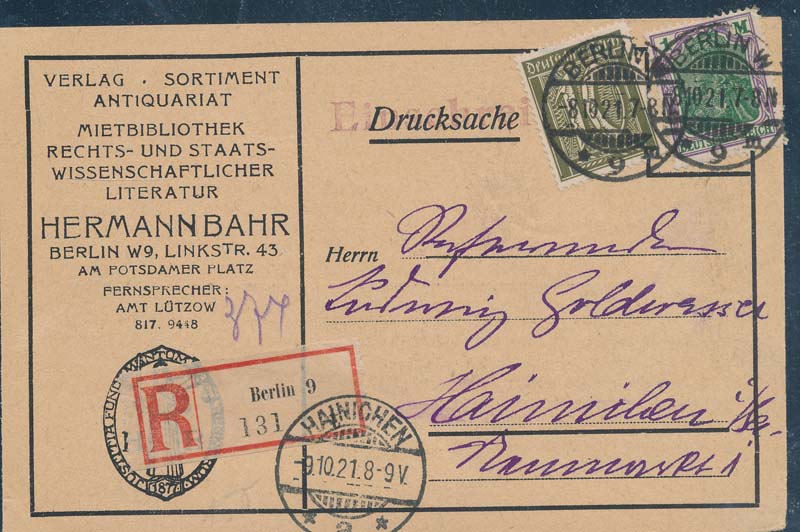 VERLAG · SORTIMENT
ANTIQUARIAT
MIETBIBLIOTHEK
RECHTS- UND STAATS-
WISSENSCHAFTLICHER
LITERATUR
HERMANN BAHR
BERLIN W9, LINKSTR. 43
AM POTSDAMER PLATZ
FERNSPRECHER:
AMT LÜTZOW
817. 9448
374
Einschrei
Drucksache
BERLIN W
8.10.21.7-8N
* 9
BERLIN W
8.10.21.7-8N
* 9
1 M
Herrn Referendar
Ludwig Goldwasser
Hainichen i/Sa.
Neumarkt 1
R
Berlin 9
131
HAINICHEN
-9.10.21.8-9V.
* a *